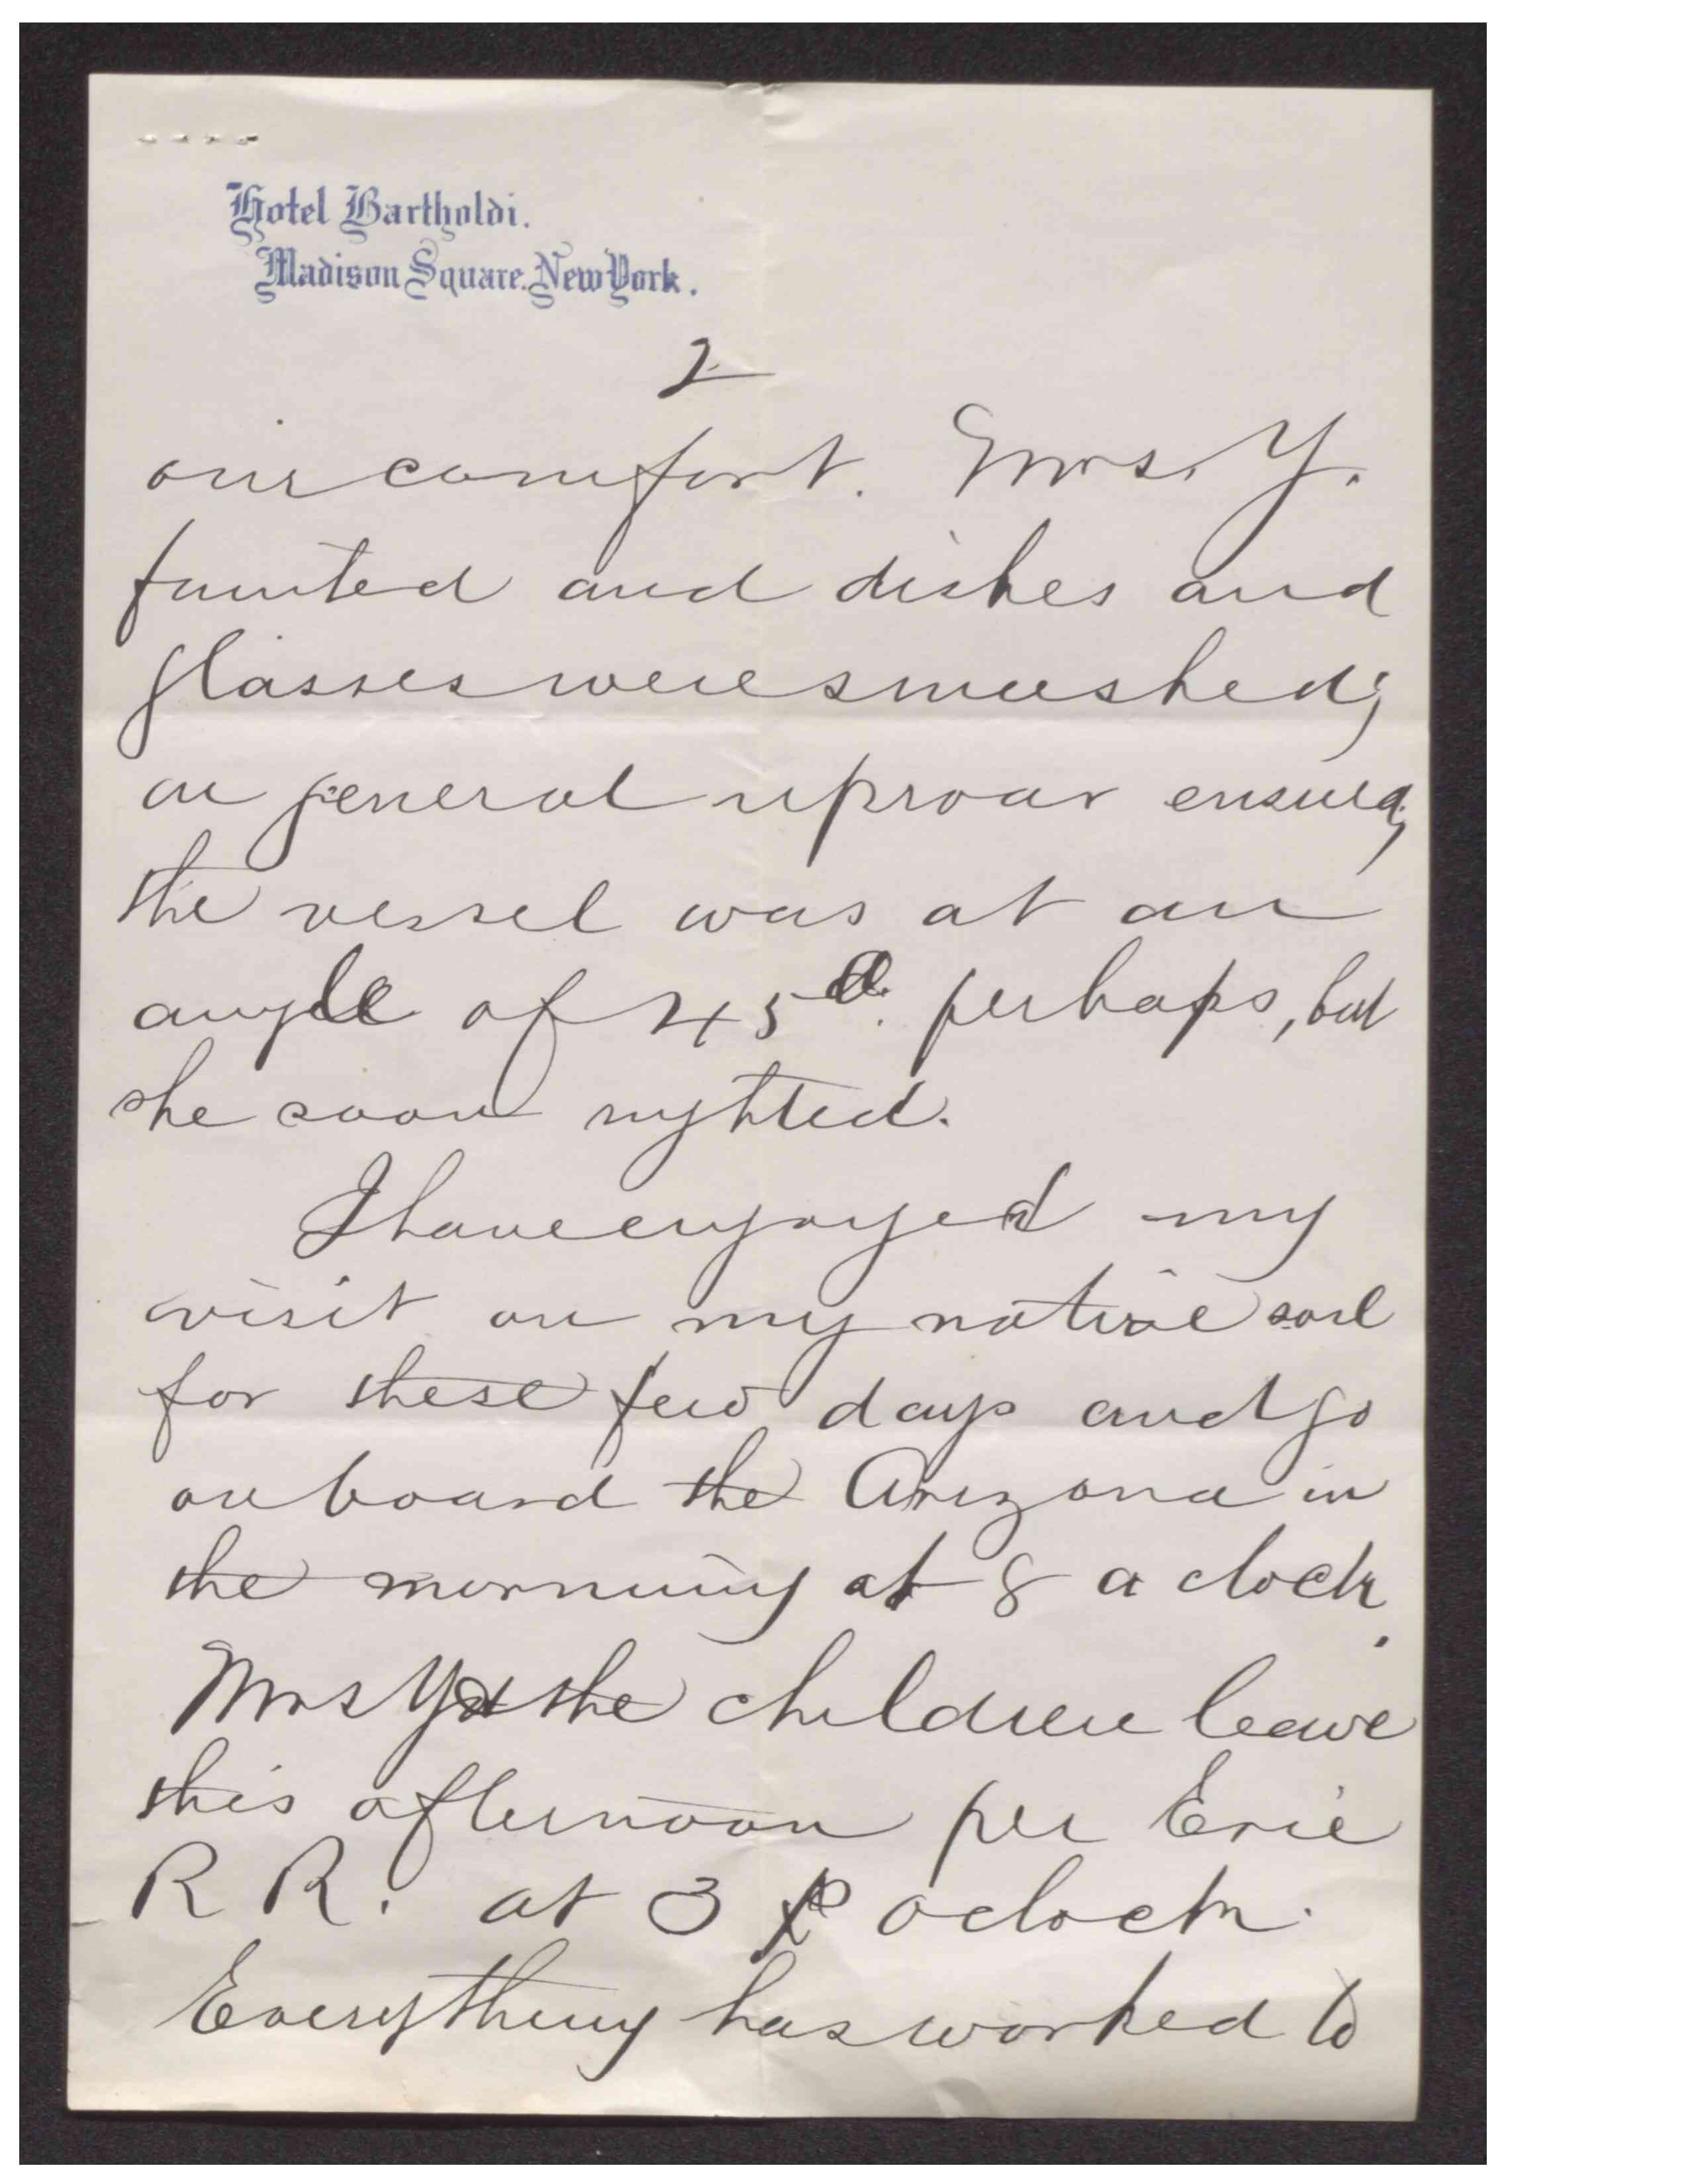 Hotel Bartholdi.
Madison Square. New York.
2
our comfort. Mrs. Y.
fainted and dishes and
glasses were smashed;
a general uproar ensued;
the vessel was at an
angle of 45 d. perhaps, but
she soon righted.
I have enjoyed my
visit on my native soil
for these few days and go
on board the Arizona in
the morning at 8 a clock.
Mrs Y & the children leave
this afternoon per Erie
R R. at 3 P oclock.
Everything has worked to